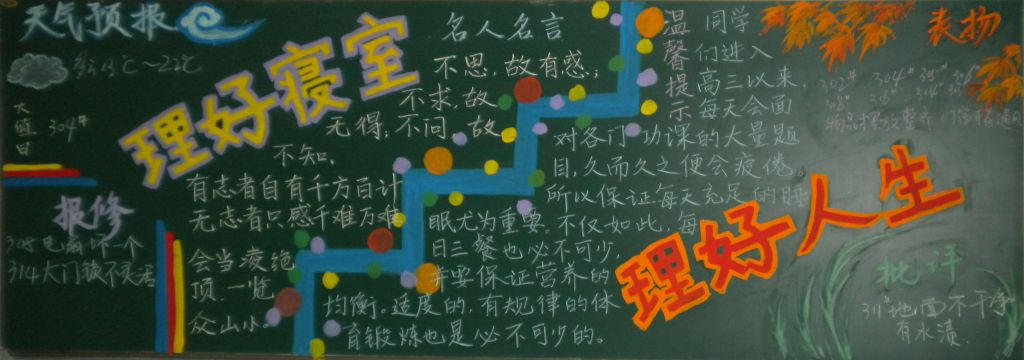 天气预报
多云 13℃~22℃
大值日 304#
报修
308电扇叶一个
314大门锁不灵活
理好寝室
名人名言
不思,故有惑;
不求,故
无得;不问,故
不知.
有志者自有千方百计
无志者只感千难万难
会当凌绝
顶,一览
众山小.
温馨提示
同学
们进入
高三以来,
每天会面
对各门功课的大量题
目,久而久之便会疲倦
所以保证每天充足的睡
眠尤为重要。不仅如此,每
日三餐也必不可少,
并要保证营养的
均衡。适度的,有规律的体
育锻炼也是必不可少的。
理好人生
表扬
302# 304#
批评
311#地面不干净
有水渍.